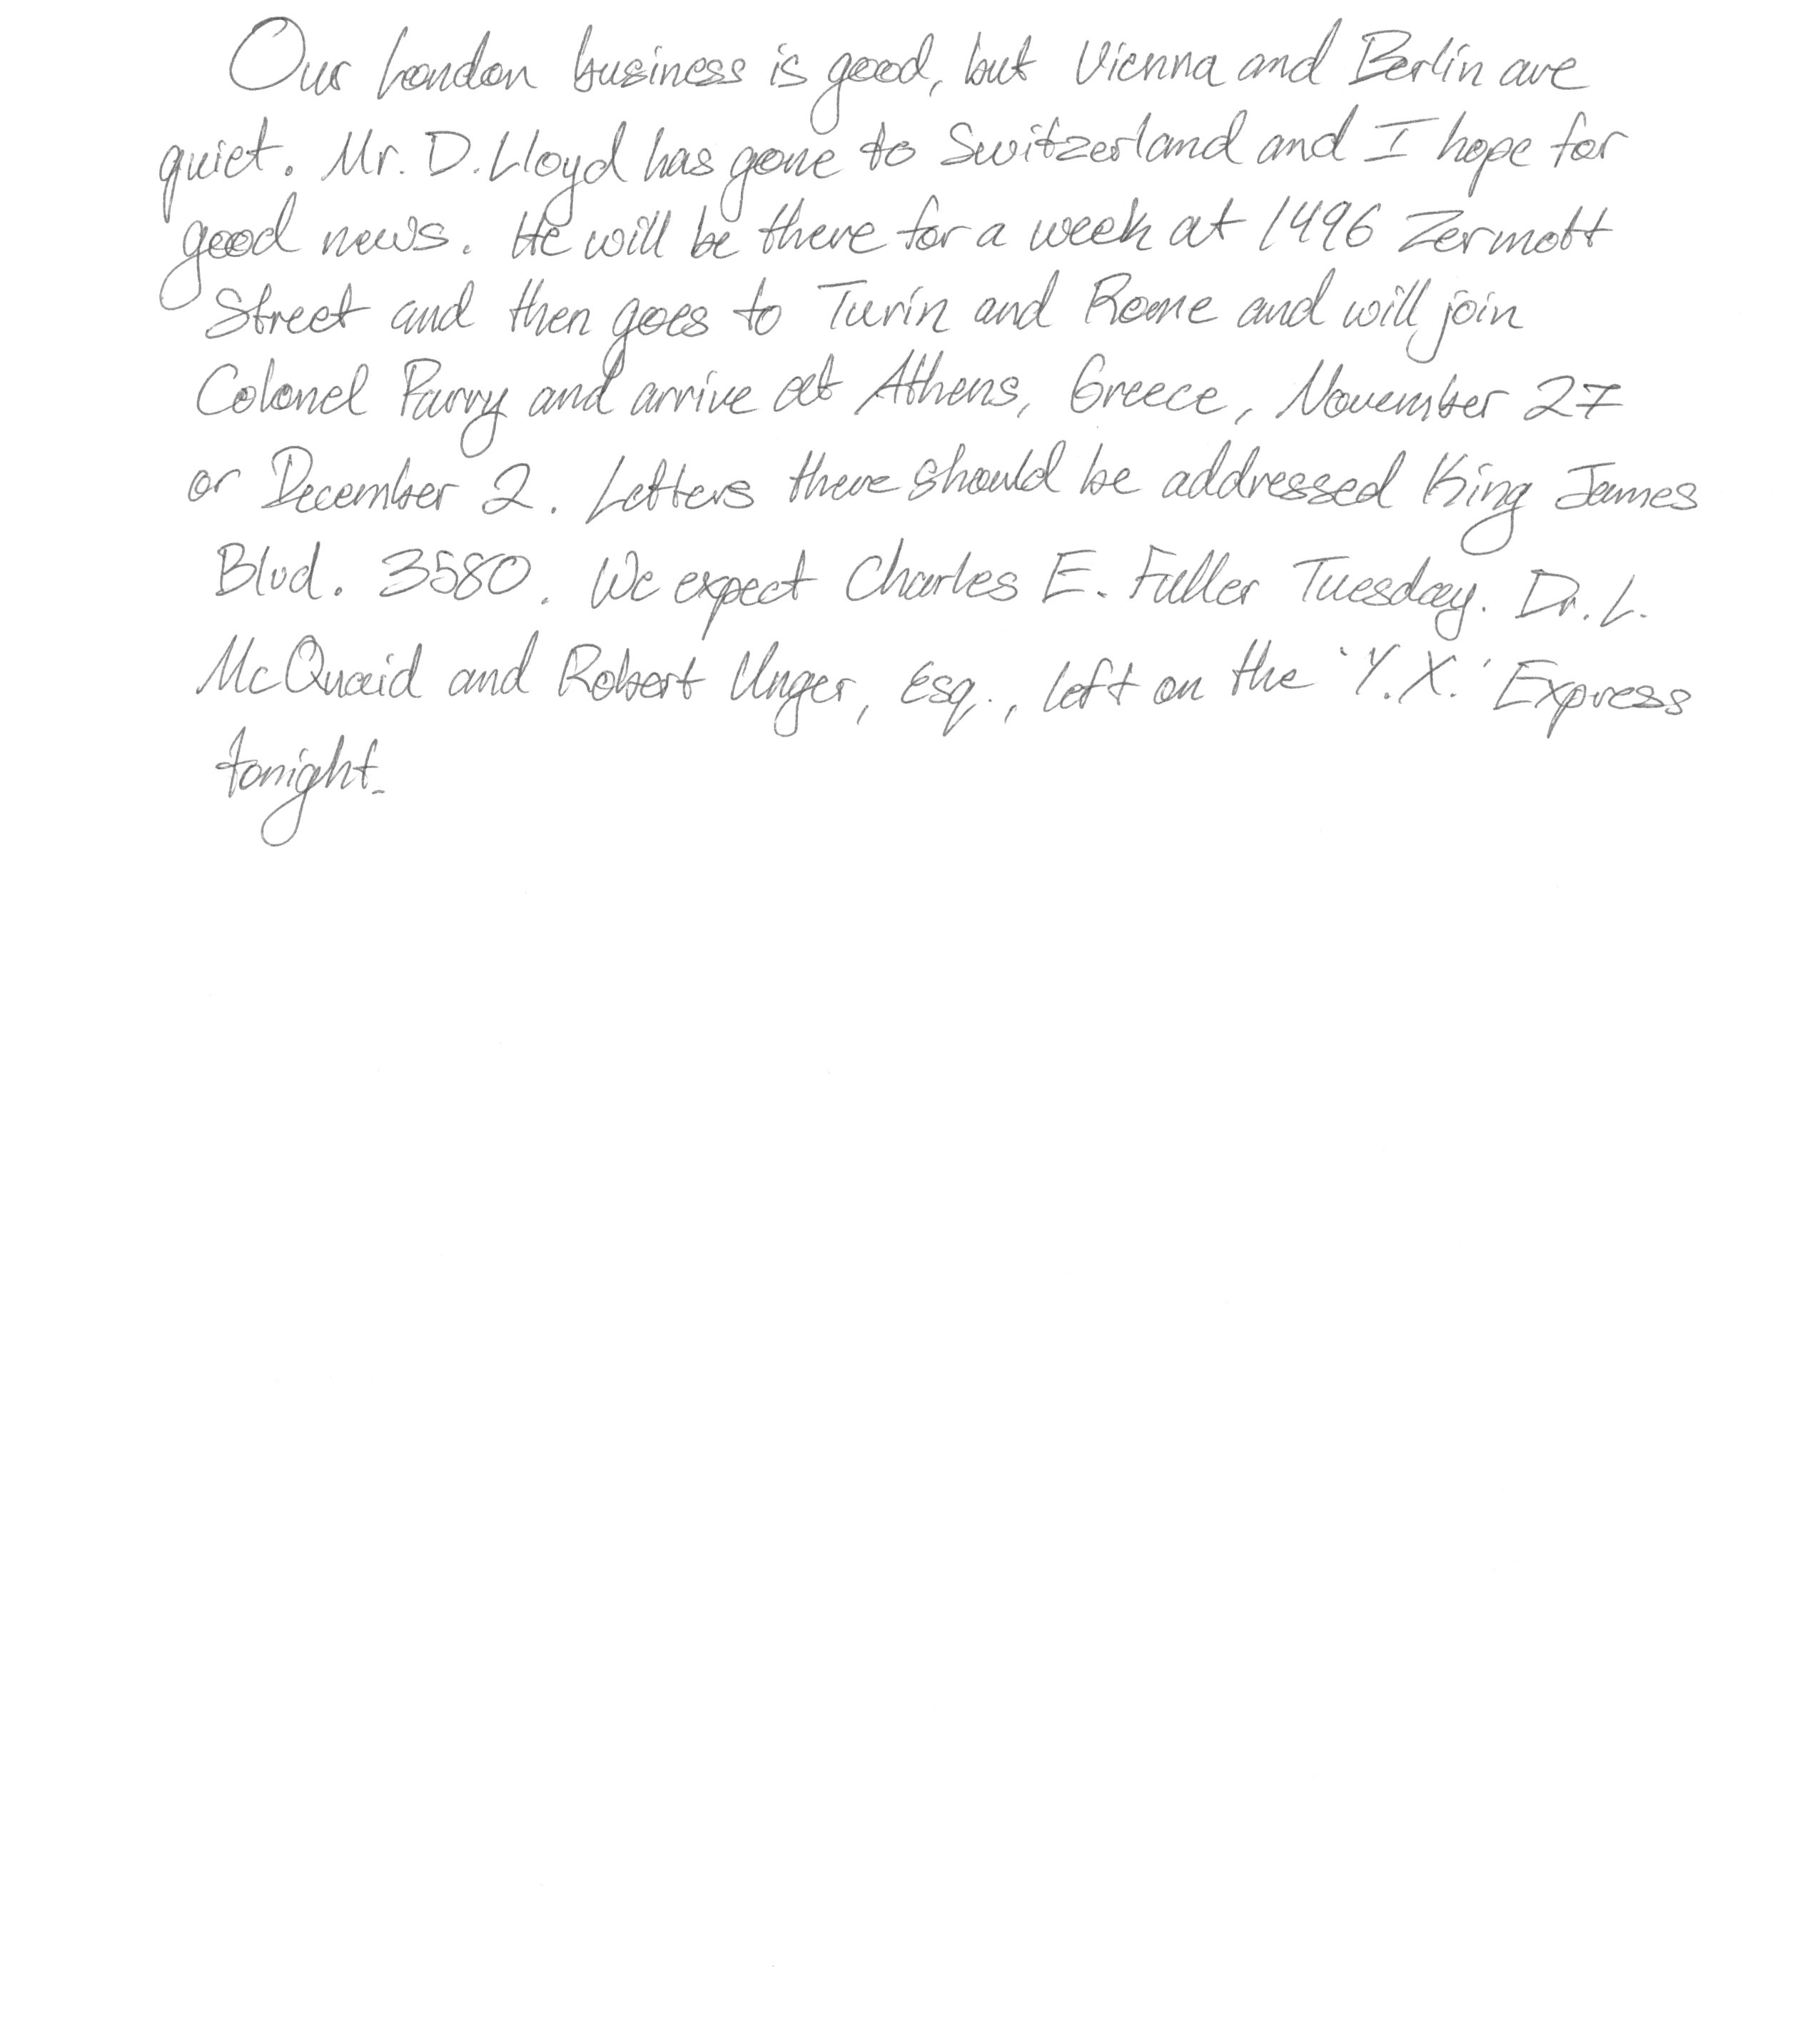 Our London business is good, but Vienna and Berlin are
quiet. Mr. D. Lloyd has gone to Switzerland and I hope for
good news. He will be there for a week at 1496 Zermott
Street and then goes to Turin and Rome and will join
Colonel Parry and arrive at Athens, Greece, November 27
or December 2. Letters there should be addressed King James
Blvd. 3580. We expect Charles E. Fuller Tuesday. Dr. L.
McQuaid and Robert Unger, Esq., left on the 'Y.X.' Express
tonight.